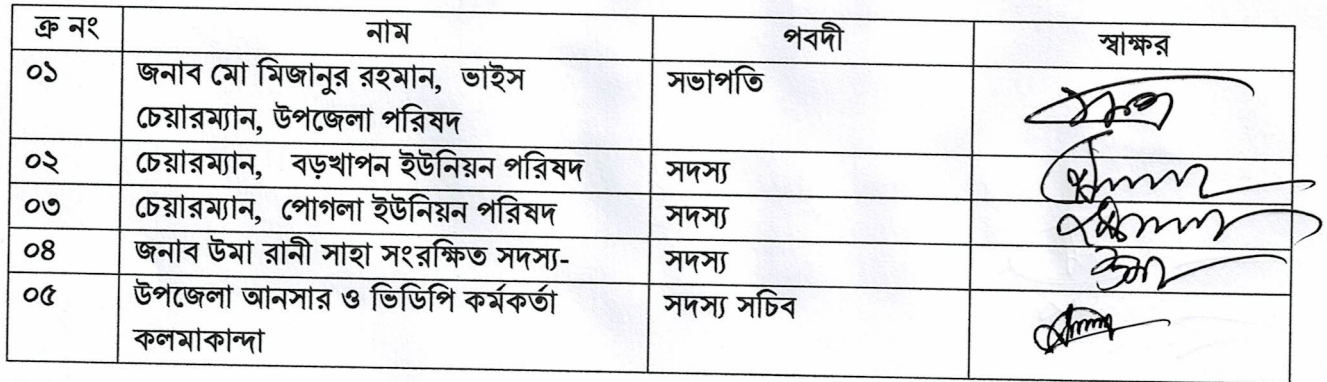 ক্র নং নাম পবদী স্বাক্ষর
০১ জনাব মো মিজানুর রহমান, ভাইস সভাপতি
চেয়ারম্যান, উপজেলা পরিষদ
০২ চেয়ারম্যান, বড়খাপন ইউনিয়ন পরিষদ সদস্য
০৩ চেয়ারম্যান, পোগলা ইউনিয়ন পরিষদ সদস্য
০৪ জনাব উমা রানী সাহা সংরক্ষিত সদস্য- সদস্য
০৫ উপজেলা আনসার ও ভিডিপি কর্মকর্তা সদস্য সচিব
কলমাকান্দা